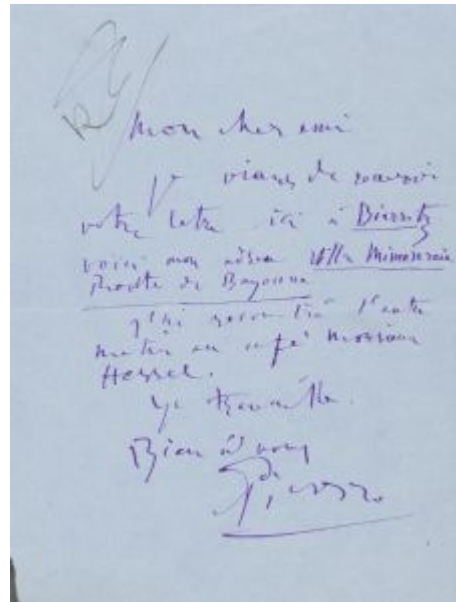 Mon cher ami
je viens de recevoir
votre letre ici à Biarritz
voici mon adresse Villa Mimoseraie
Route de Bayonne
j'ai rencontré l'autre
matin au café Monsieur
Hessel.
Je travaille.
Bien à vous
Picasso